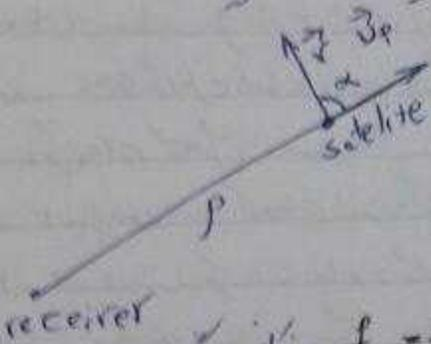 v⃗ v⃗ρ
α
satelite
ρ
receiver